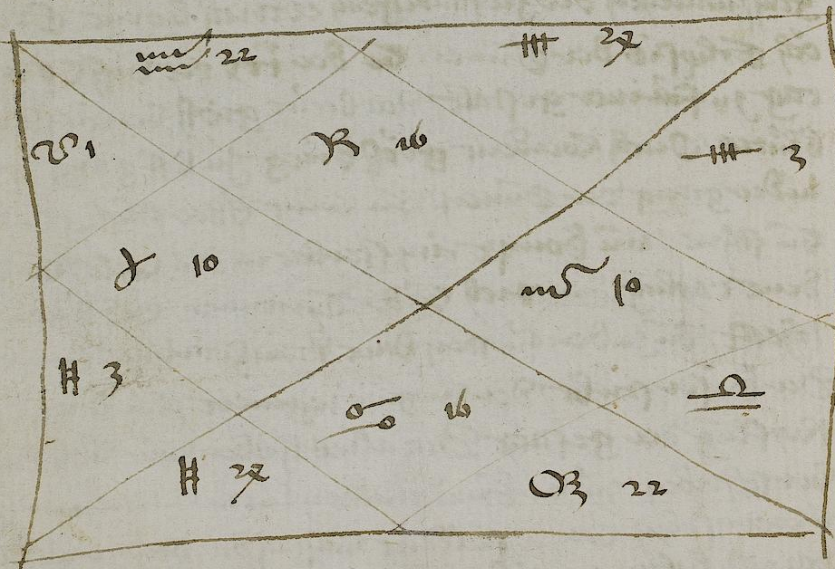 ♒ 22 ♐ 24
♈ 1 ♑ 16 ♐ 3
♉ 10 ♏ 10
♊ 3 ♋ 16 ♎
♊ 24 ♌ 22